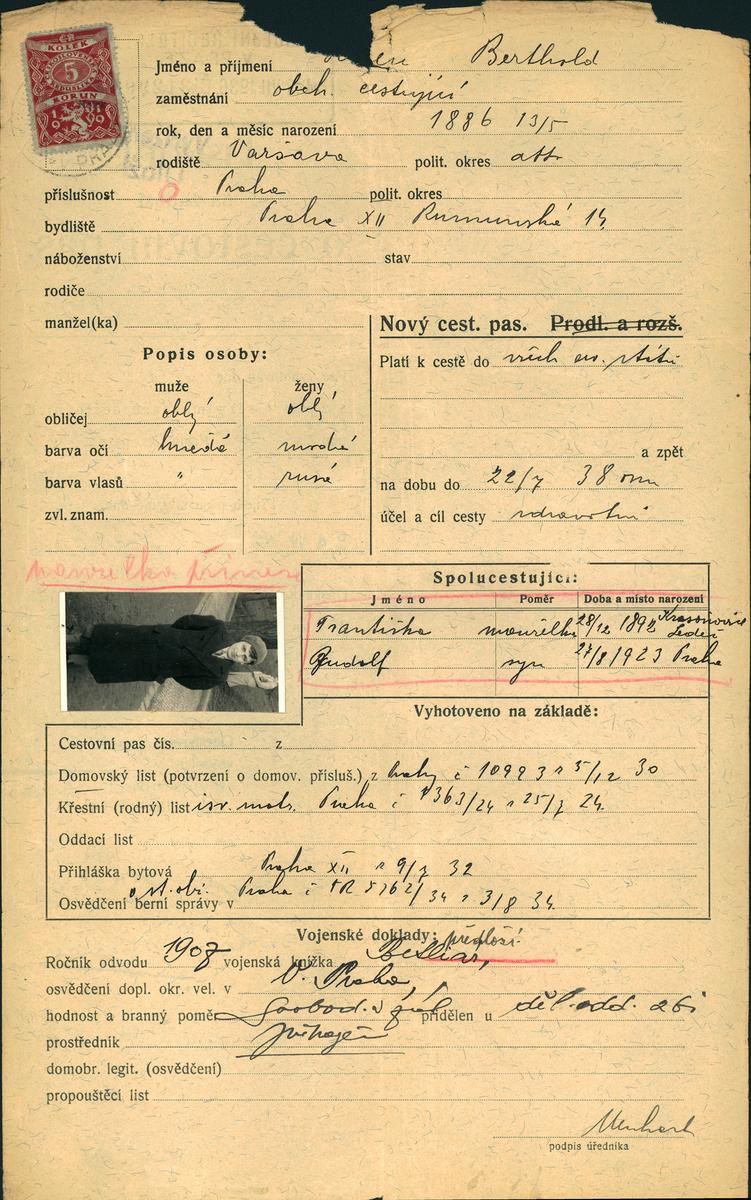 KOLEK
5
KORUN
Jméno a příjmení Berthold
zaměstnání obch. cestující
rok, den a měsíc narození 1886 13/5
rodiště Varšava polit. okres
příslušnost Praha polit. okres
bydliště Praha XII Rumunská 14
náboženství stav
rodiče
manžel(ka)
Nový cest. pas. Prodl. a rozš.
Popis osoby:
muže ženy
obličej oblý oblý
barva očí hnědé modré
barva vlasů " rusé
zvl. znam.
Platí k cestě do všech ev. států
a zpět
na dobu do 22/7 38
účel a cíl cesty zdravotní
manželka
Spolucestující:
Jméno Poměr Doba a místo narození
Františka manželka 28/12 1892 Ledeč
Rudolf syn 27/8 1923 Praha
Vyhotoveno na základě:
Cestovní pas čís. z
Domovský list (potvrzení o domov. přísluš.) z Prahy č 10993 z 5/12 30
Křestní (rodný) list isr. matr. Praha č 363/24 z 25/7 24
Oddací list
Přihláška bytová Praha XII z 9/7 32
Osvědčení berní správy v Praha č 5762/34 z 3/8 34
Vojenské doklady: předloží
Ročník odvodu 1907 vojenská knížka
osvědčení dopl. okr. vel. v Praha,
hodnost a branný poměr přidělen u
prostředník
domobr. legit. (osvědčení)
propouštěcí list
podpis úředníka